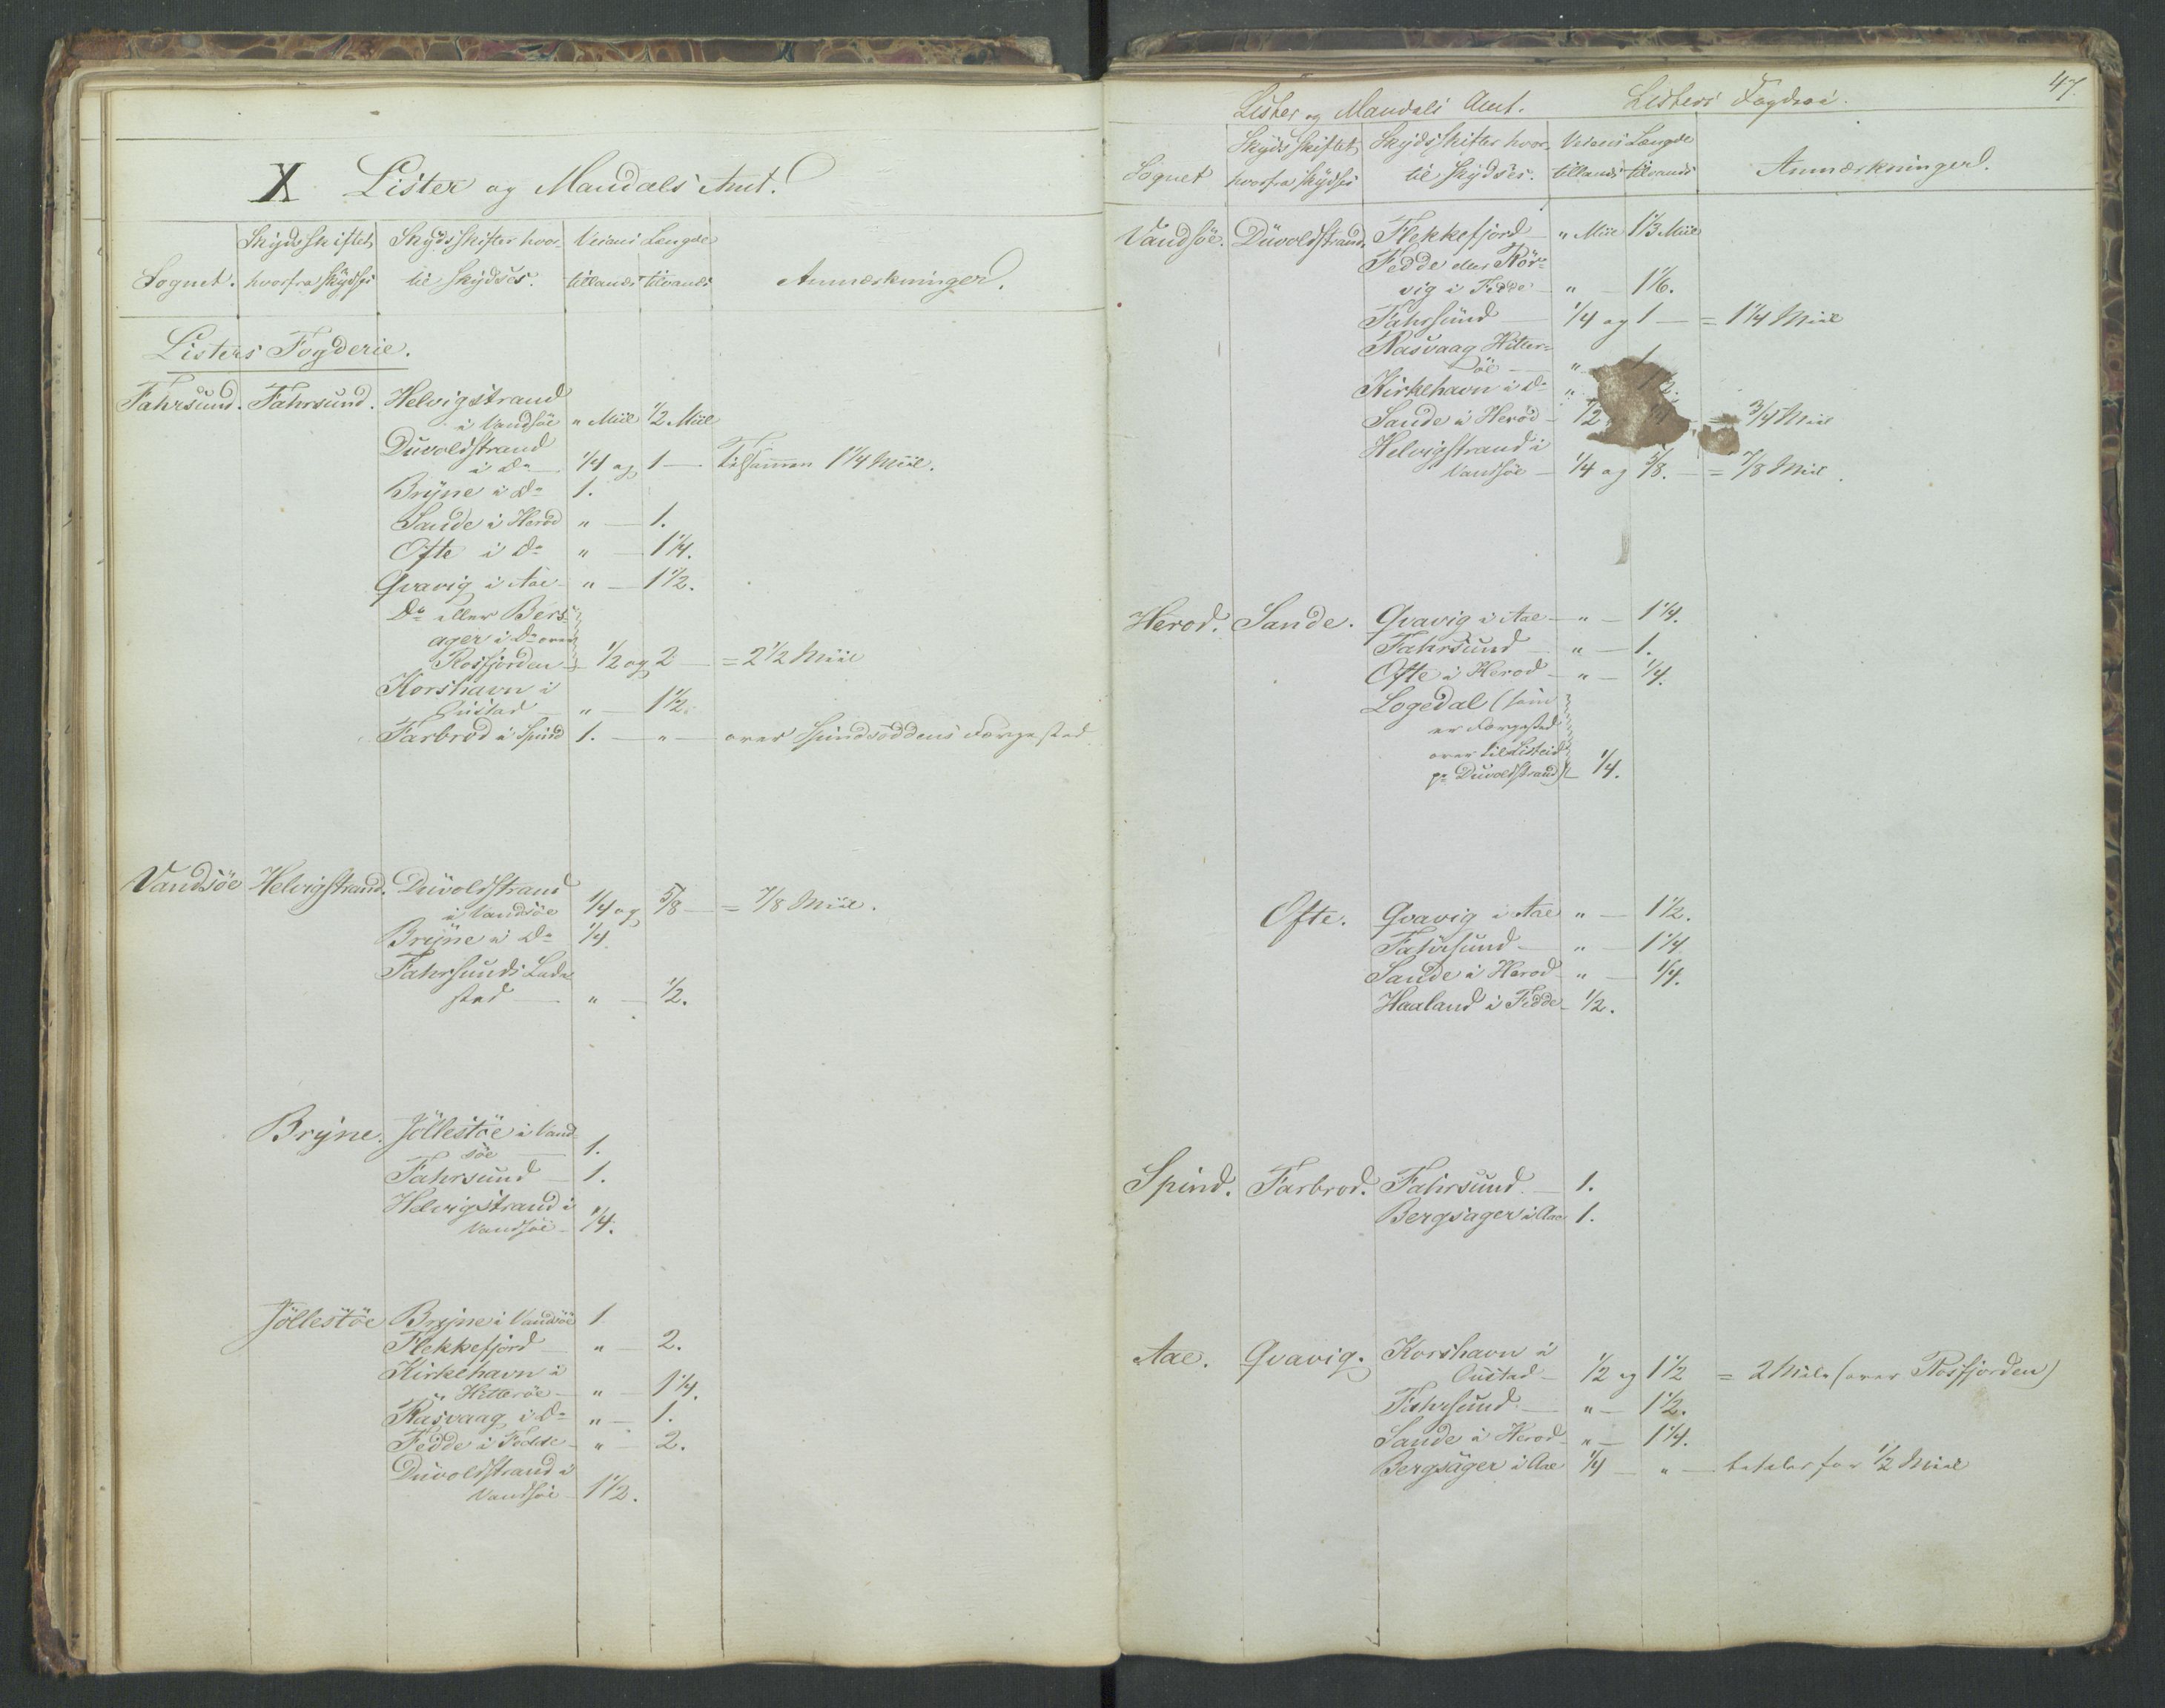 X Lister og Mandals Amt.
Sognet. Skydsskiftet hvorfra skydses Skydsskifter hvortil skydses. Veiens Længde tillands tilvands Anmærkninger.
Listers Fogderie.
Fahrsund. Fahrsund. Helvigstrand
i Vandsöe " Miil 1/2 Miil
Düvoldstrand
i Do 1/4 og 1 — tilsammen 1 1/4 Miil.
Brÿne i Do 1.
Sande i Herod " — 1.
Ofte i Do " — 1 1/4.
Qvavig i Aae " — 1 1/2.
Do eller Bers-
ager i Do over
Rosfjorden 1/2 og 2 — = 2 1/2 Miil
Korshavn i
Oüstad " — 1 1/2.
Farbrod i Spind 1. — " — over Spindsoddens Færgested
Vandsöe Helvigstrand. Düvoldstrand
i Vandsöe 1/4 og 5/8 — = 7/8 Miil.
Brÿne i Do 1/4.
Fahrsunds Lade-
sted — " — 1/2.
Brÿne. Jöllestöe i Vand-
söe — 1.
Fahrsund — 1.
Helvigstrand i
Vandsöe — 1/4.
Jöllestöe Brÿne i Vandsöe 1
Flekkefjord " — 2.
Kirkehavn i
Hitteröe — " — 1 1/4.
Rasvaag i Do " — 1.
Fedde i Fedde — " — 2.
Düvoldstrand i
Vandsöe — 1 1/2.
47
Lister og Mandals Amt. Listers Fogderi.
Sognet Skydsskiftet hvorfra skydses Skydsskifter hvortil skydses. Veiens Længde tillands tilvands Anmærkninger.
Vandsöe. Düvoldstrand. Flekkefjord — " Miil 1 1/3 Miil
Fedde eller Rör-
vig i Fedde — " — 1 1/6.
Fahrsund — 1/4 og 1 — = 1 1/4 Miil
Rasvaag Hitter-
öe — " 1
Kirkehavn i Do "
Sande i Herod — 1/2 = 3/4 Miil
Helvigstrand i
Vandsöe — 1/4 og 5/8. — = 7/8 Miil.
Herod. Sande. Qvavig i Aae — " — 1 1/4.
Fahrsund — " — 1.
Ofte i Herod — " — 1/4.
Logedal (som
er Færgested
over til Listeid
pr Düvoldstrand) — 1/4.
Ofte. Qvavig i Aae " — 1 1/2.
Fahrsund — " — 1 1/4
Sande i Herod " — 1/4.
Haaland i Fedde — 1/2.
Spind. Farbrod. Fahrsund. — 1.
Bergsager i Aae 1.
Aae. Qvavig. Korshavn i
Oüstad — 1/2 og 1 1/2 = 2 Mile (over Rosfjorden)
Fahrsund. — " — 1 1/2.
Sande i Herod — " — 1 1/4.
Bergsager i Aae 1/4 — " — betales for 1/2 Miil